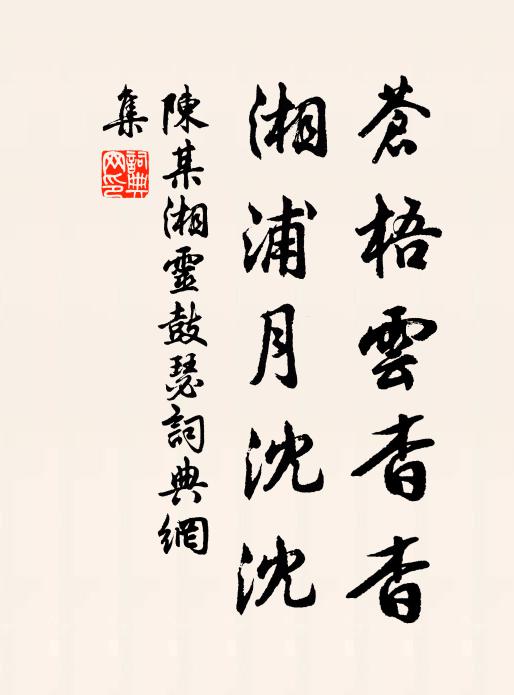 蒼梧雲杳杳
湘浦月沈沈
陳某湘靈鼓瑟詞典網
集
詞典
网印